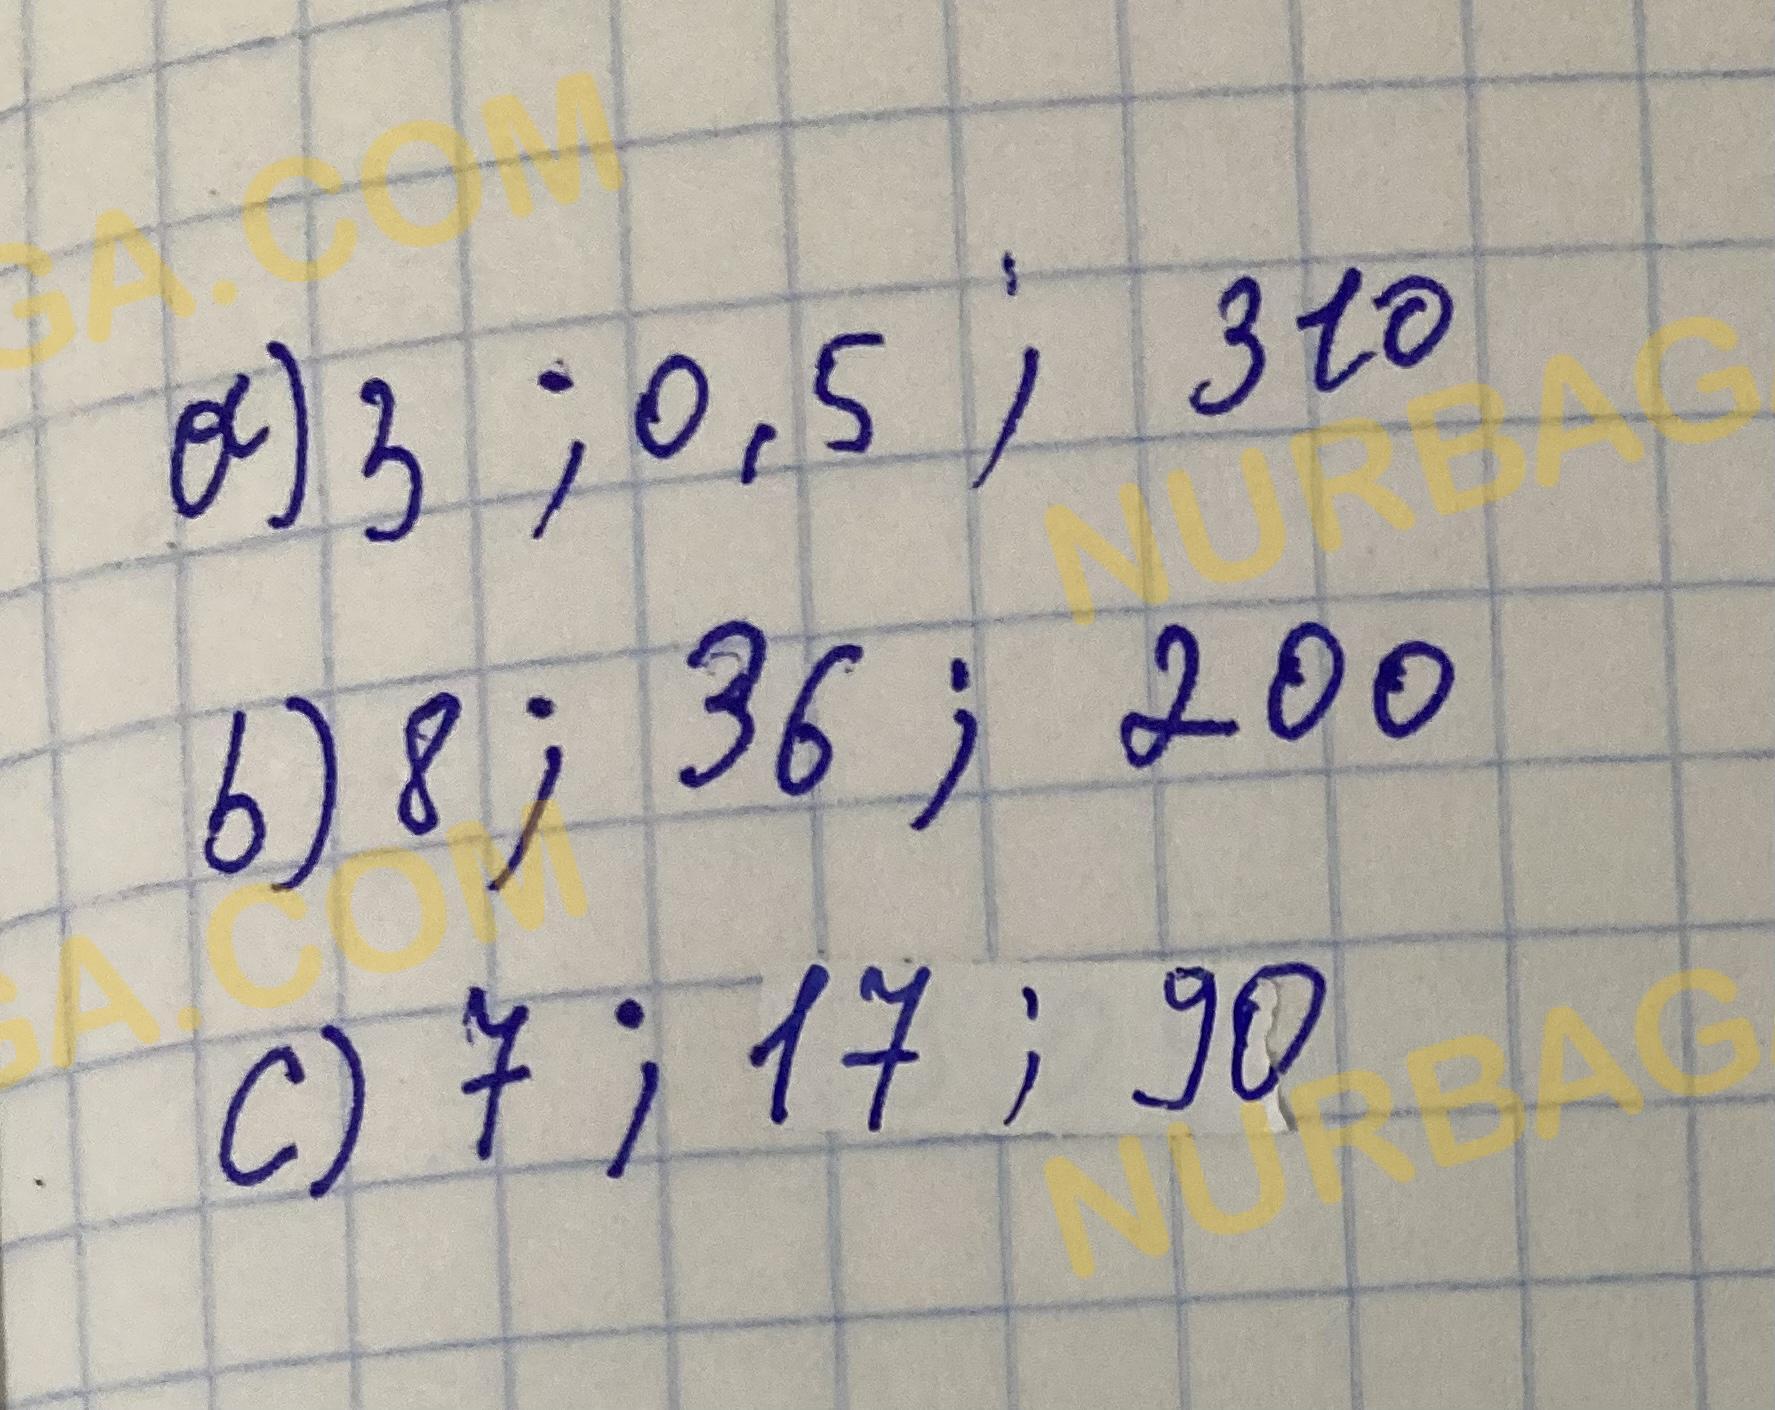 a) 3 ; 0,5 ; 310
b) 8 ; 36 ; 200
c) 7 ; 17 ; 90
GA.COM
NURBAG
GA.COM
NURBAG